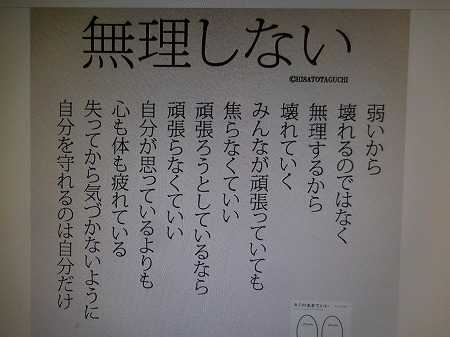 無理しない
©HISATOTAGUCHI
弱いから
壊れるのではなく
無理するから
壊れていく
みんなが頑張っていても
焦らなくていい
頑張ろうとしているなら
頑張らなくていい
自分が思っているよりも
心も体も疲れている
失ってから気づかないように
自分を守れるのは自分だけ